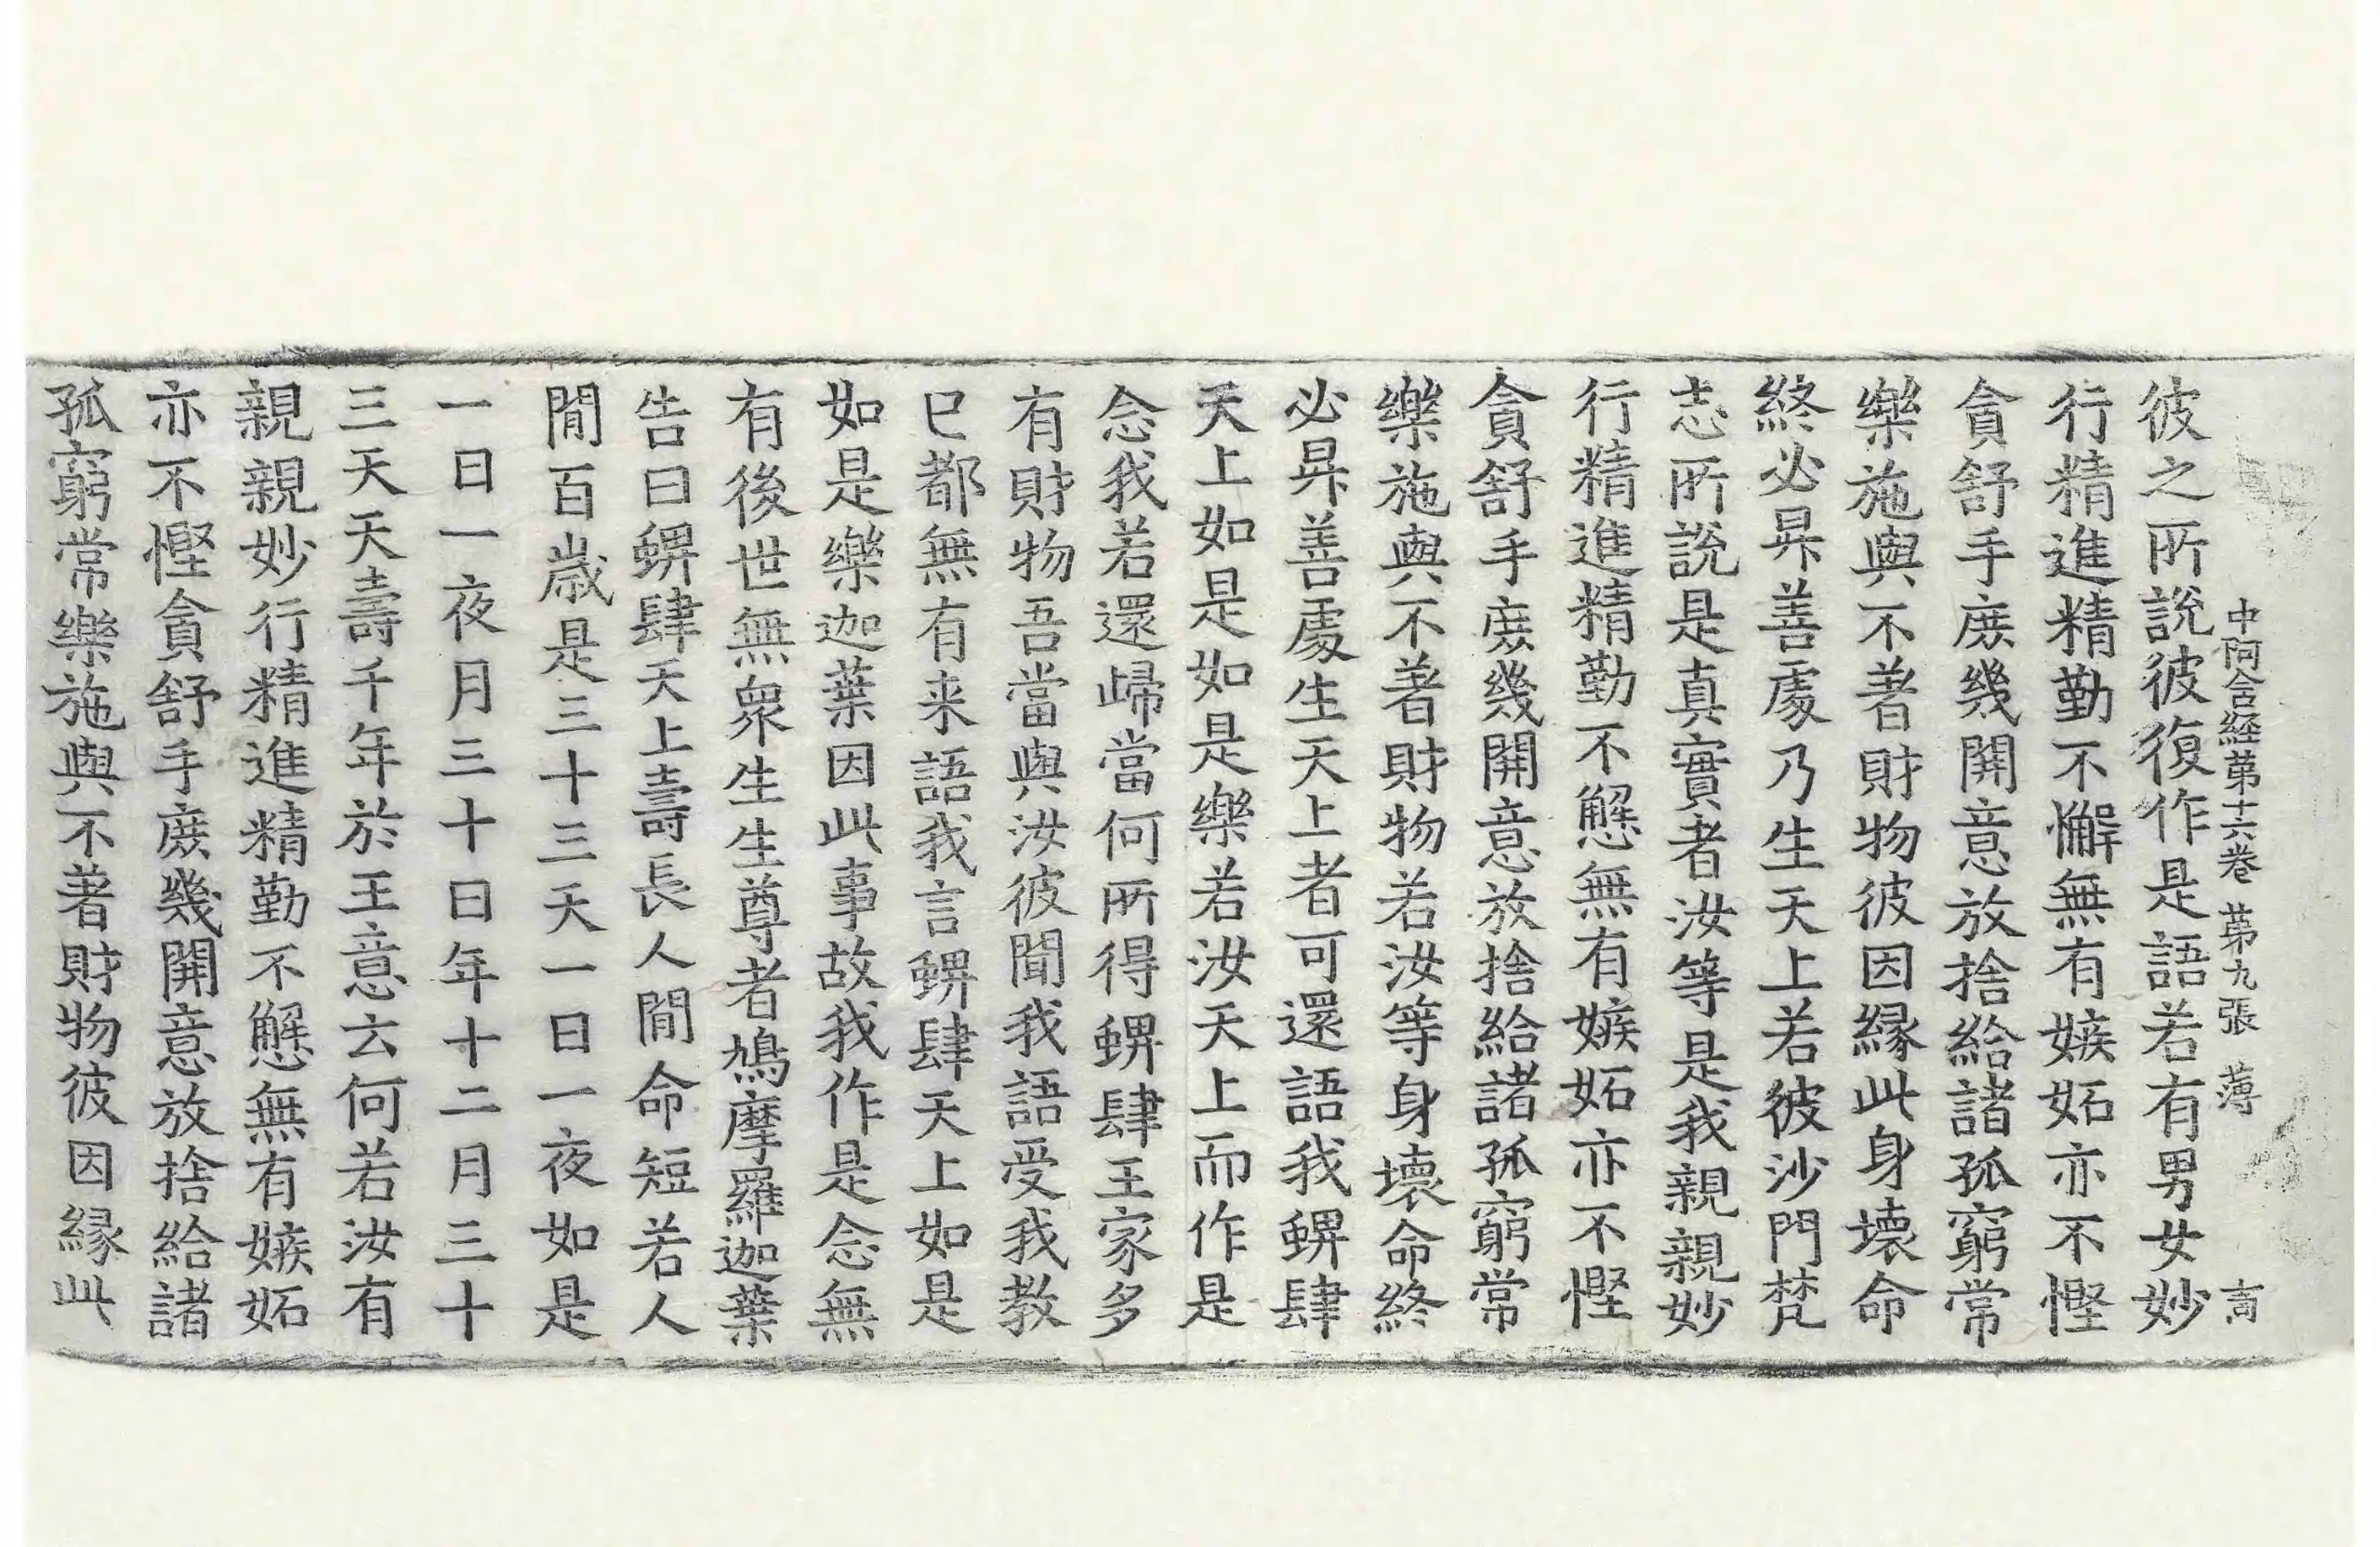 中阿含経第十六卷 第九張 薄
彼之所說彼復作是語若有男女妙
行精進精勤不懈無有嫉妬亦不慳
貪舒手庶幾開意放捨給諸孤窮常
樂施與不著財物彼因縁此身壞命
終必昇善處乃生天上若彼沙門梵
志所說是真實者汝等是我親親妙
行精進精勤不懈無有嫉妬亦不慳
貪舒手庶幾開意放捨給諸孤窮常
樂施與不著財物若汝等身壞命終
必昇善處生天上者可還語我蜱肆
天上如是如是樂若汝天上而作是
念我若還歸當何所得蜱肆王家多
有財物吾當與汝彼聞我語受我教
已都無有来語我言蜱肆天上如是
如是樂迦葉因此事故我作是念無
有後世無衆生生尊者鳩摩羅迦葉
告曰蜱肆天上壽長人閒命短若人
閒百歳是三十三天一日一夜如是
一日一夜月三十日年十二月三十
三天天壽千年於王意云何若汝有
親親妙行精進精勤不懈無有嫉妬
亦不慳貪舒手庶幾開意放捨給諸
孤窮常樂施與不著財物彼因縁此